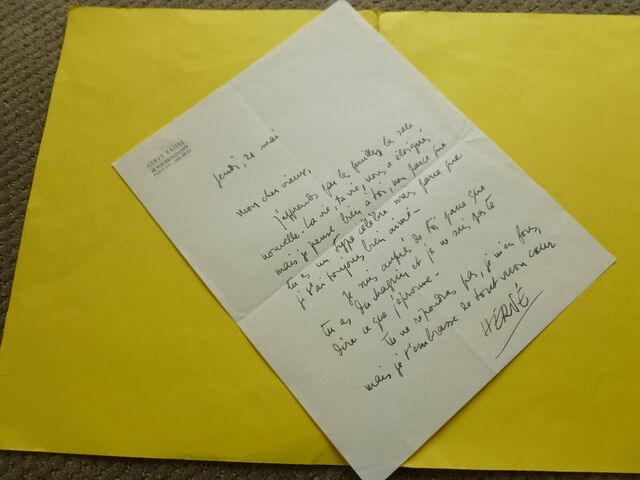 HERVÉ
jeudi, 21 mai
Mon cher vieux,
j'apprends par le feuilles la sale
nouvelle. La vie, ta vie, nous a éloignés
mais je pense bien à toi, non parce que
tu es un type célèbre mais parce que
je t'ai toujours bien aimé.
Je suis auprès de toi parce que
tu as du chagrin et je ne sais pas te
dire ce que j'éprouve.
Tu ne répondras pas, je m'en fous,
mais je t'embrasse de tout mon cœur
HERVÉ